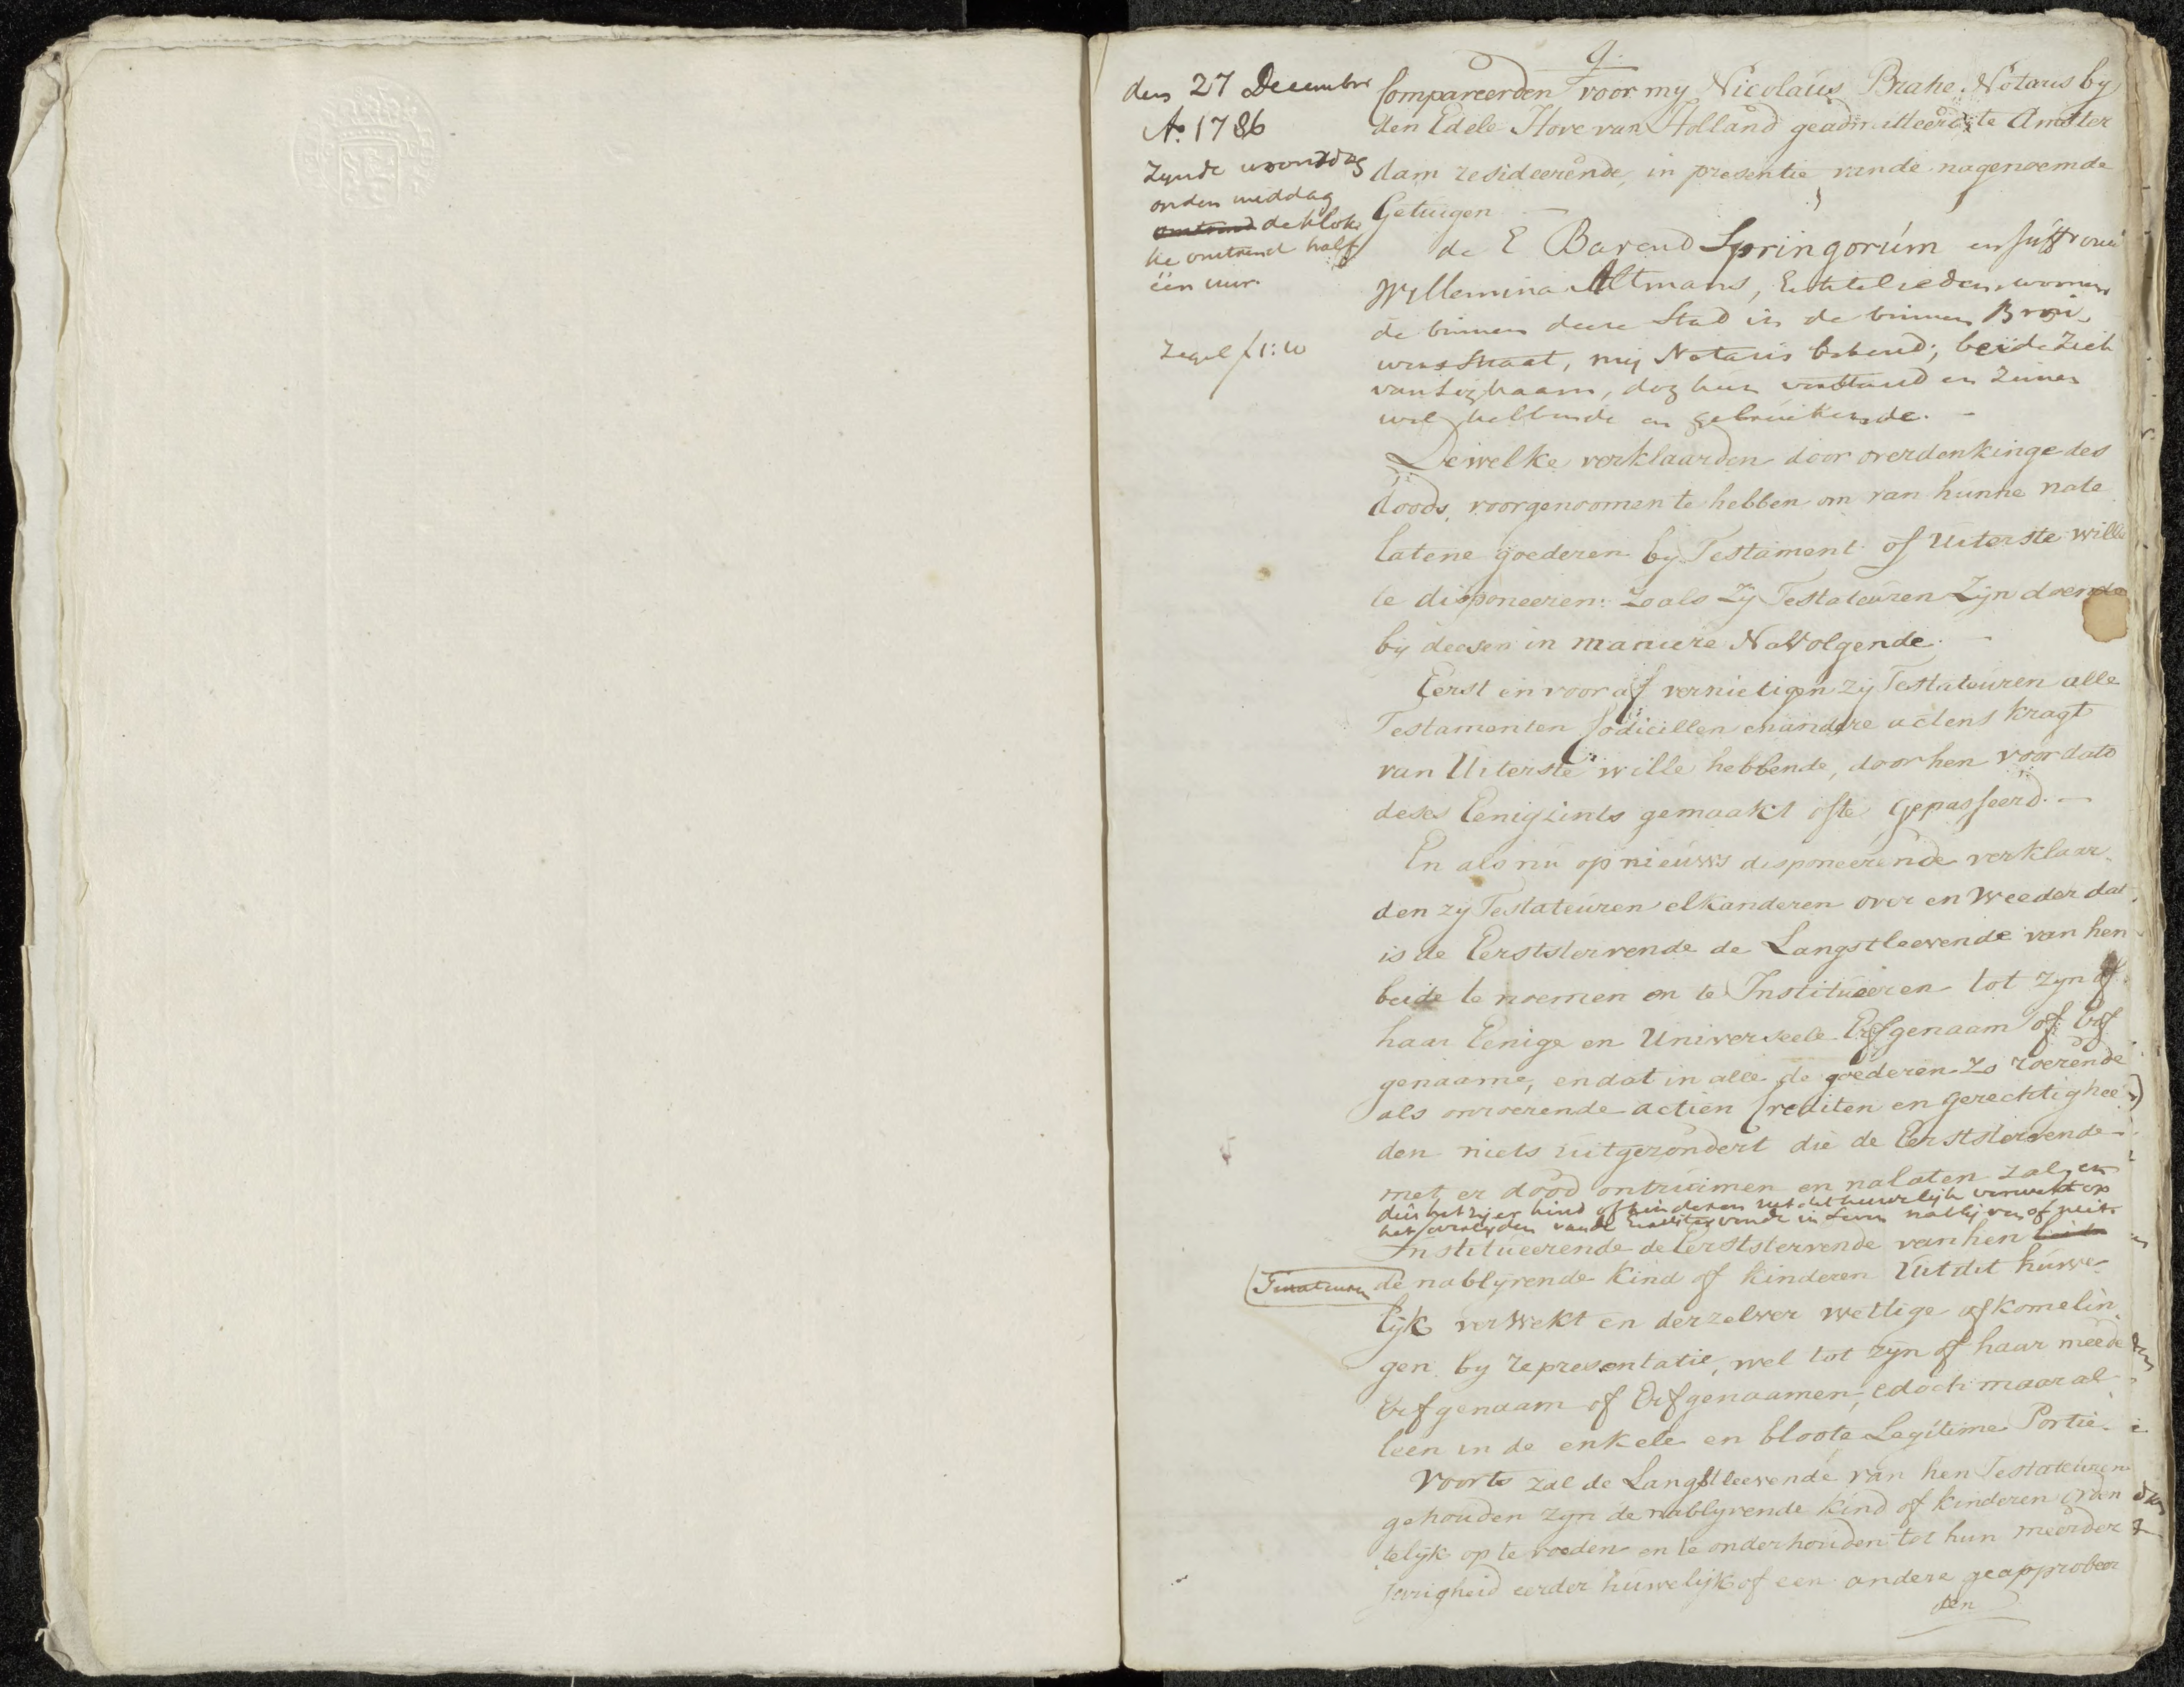 9.
den 27 Decembr
Ao. 1786
Zynde woonsdag
onder middag
omtrend de klok
ke omtrend half
één uur.
Zegel f 1:10
Compareerden voor my Nicolaús Brahe, Notaris by
den Edele Hove van Holland geadmitteerd, te Amster
dam resideerende, in presentie vande nagenoemde
Getuigen
de E Barend Springorúm en Juffrouw
Willemina Altmans, Echtelieden, woonen
de binnen deese Stad in de binnen Brou
wersstraat, mij Notaris bekend; beide Ziek
van Lighaam, dog hun verstand en Zinnen
wel hebbende en gebruikende.
Dewelke verklaarden door overdenkinge des
doods, voorgenoomen te hebben om van hunne nate
latene goederen by Testament of Uiterste wille
te disponeeren: Zoals Zy Testateuren Zyn doende
by deesen in maniere NaVolgende.
Eerst en voor af vernietigen zy Testateuren alle
Testamenten Codicillen en andere actens kragt
van Uiterste wille hebbende, door hen voor dato
deses Eenigzints gemaakt ofte gepasseerd.
En als nú op nieuws disponeerende verklaar
den zy Testateúren elkanderen over en Weeder dat
is de Eerststervende de Langstleevende van hen
beide te noemen en te Institueeren tot zyn of
haar Eenige en Universeele Erfgenaam of Erf
genaame, en dat in alle de goederen Zo roerende
als onroerende actien Crediten en gerechtighee
den niets úitgezondert die de Eerststervende
met er dood ontruimen en nalaten zal, en
dús het zy er kind of kinderen uit dit huwelijk verwekt op
het overlyden van de Eerststervende in leven nablyven of niet.
Institúeerende de Eerststervende van hen beide
Testateuren de nablyvende Kind of kinderen Uit dit húwe
lyk verwekt en derzelver wettige afkomelin
gen by representatie, wel tot zyn of haar meede
Erfgenaam of Erfgenaamen, edoch maar al
leen in de enkele en bloote Legitime Portie.
Voorts zal de Langstleevende van hen Testateuren
gehouden zyn de nablyvende kind of kinderen orden
telyk op te voeden en te onderhouden tot hun meerder
Jarigheid eerder huwelyk of een andere geapprobeer
den